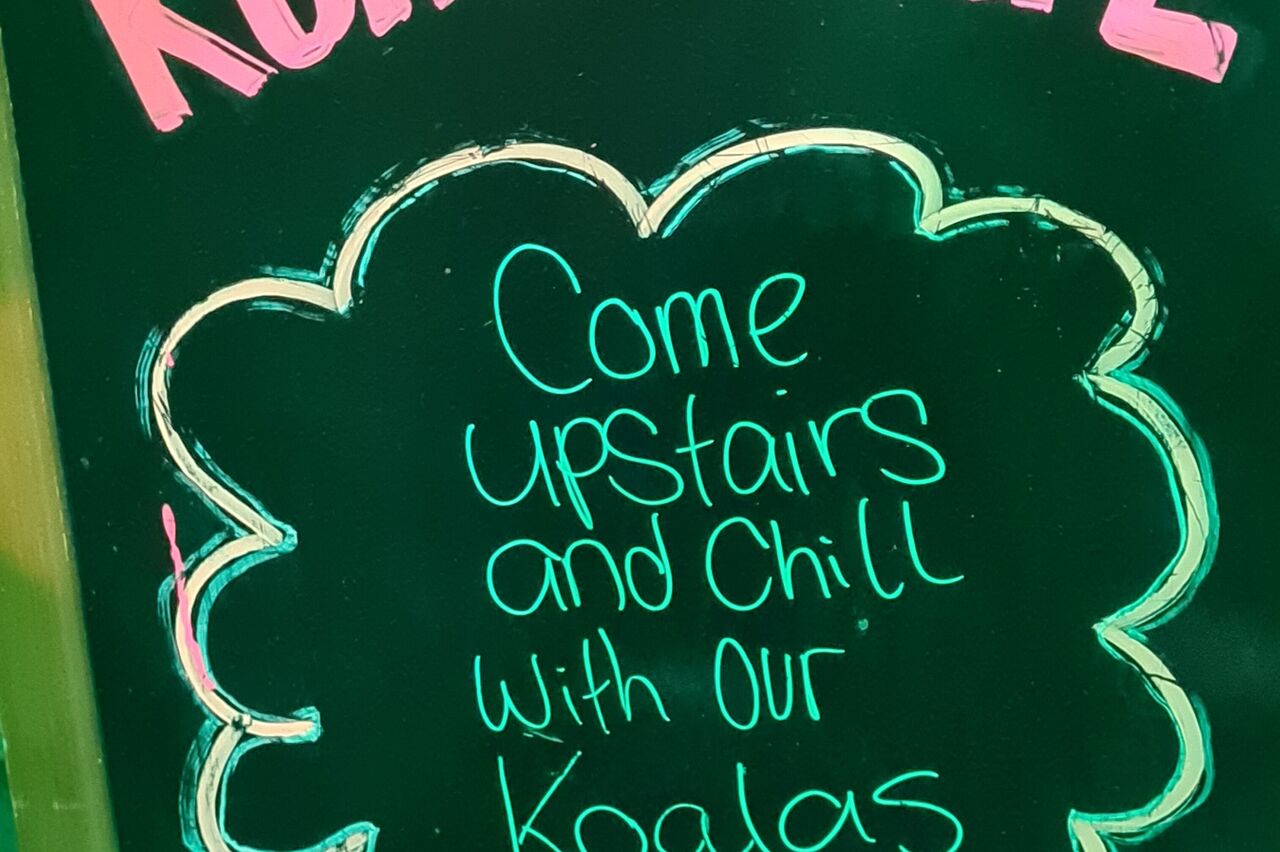 Come
upstairs
and Chill
with our
Koalas